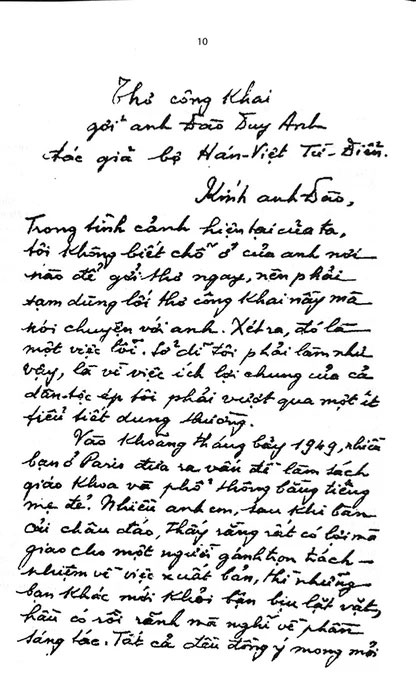 10
Thơ công khai
gởi anh Đào Duy Anh
tác giả bộ Hán-Việt Từ-Điển.
Kính anh Đào,
Trong tình cảnh hiện tại của ta,
tôi không biết chỗ ở của anh nơi
nào để gởi thơ ngay, nên phải
tạm dùng lối thơ công khai nầy mà
nói chuyện với anh. Xét ra, đó là
một việc lỗi. Sở dĩ tôi phải làm như
vậy, là vì việc ích lợi chung của cả
dân-tộc ép tôi phải vượt qua một ít
tiểu tiết dung thường.
Vào khoảng tháng bảy 1949, nhiều
bạn ở Paris đưa ra vấn đề làm sách
giáo khoa và phổ thông bằng tiếng
mẹ đẻ. Nhiều anh em, sau khi bàn
cãi châu đáo, thấy rằng rất có lợi mà
giao cho một người gánh trọn trách-
nhiệm về việc xuất bản, thì những
bạn khác mới khỏi bận bịu lặt vặt,
hầu có rỗi rảnh mà nghĩ về phần
sáng tác. Tất cả đều đồng ý mong mỏi